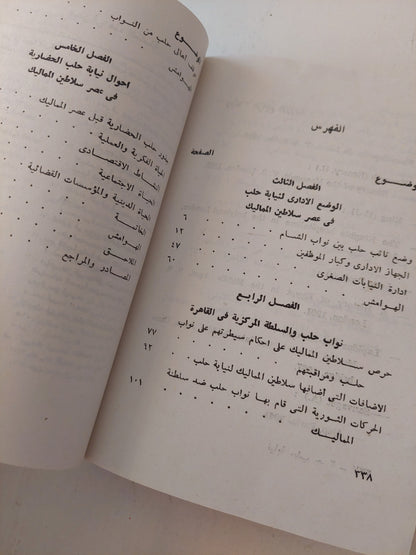 الفهرس
الموضوع
الصفحة
الفصل الثالث
الوضع الادارى لنيابة حلب
فى عصر سلاطين المماليك
وضع نائب حلب بين نواب الشام ٦
الجهاز الادارى وكبار الموظفين ١٢
ادارة النيابات الصغرى ٤٧
الهوامش ٦٠
الفصل الرابع
نواب حلب والسلطة المركزية فى القاهرة
حرص سلاطين المماليك على احكام سيطرتهم على نواب
حلب ومراقبتهم ٧٧
الاضافات التى أضافها سلاطين المماليك لنيابة حلب ٦٢
الحركات الثورية التى قام بها نواب حلب ضد سلطة
المماليك ١٠١
٢٣٨
موقف أهالى حلب من النواب
الهوامش
الفصل الخامس
احوال نيابة حلب الحضارية
فى عصر سلاطين المماليك
حلب الحضارية قبل عصر المماليك
الحياة الفكرية والعملية
النشاط الاقتصادى
الحياة الاجتماعية
الحياة الدينية والمؤسسات القضائية
الخاتمة
الهوامش
الملاحق
المصادر والمراجع